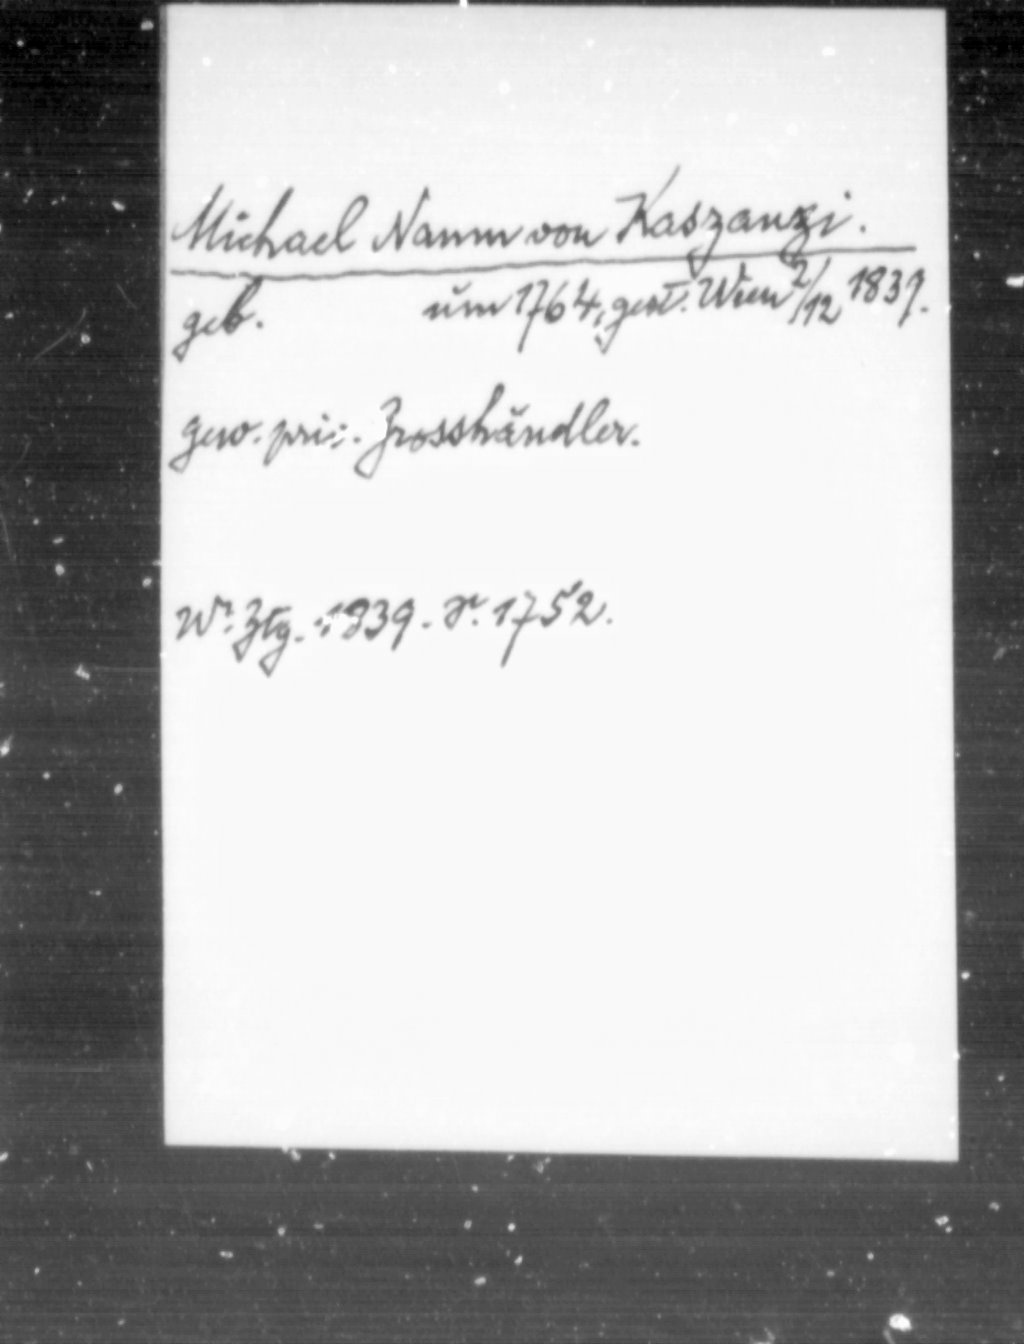 Michael Naum von Kaszanzi.
geb. um 1764, gest. Wien 2/12 1839.
gew. priv. Grosshändler.
Wr. Ztg. 1839. S. 1752.